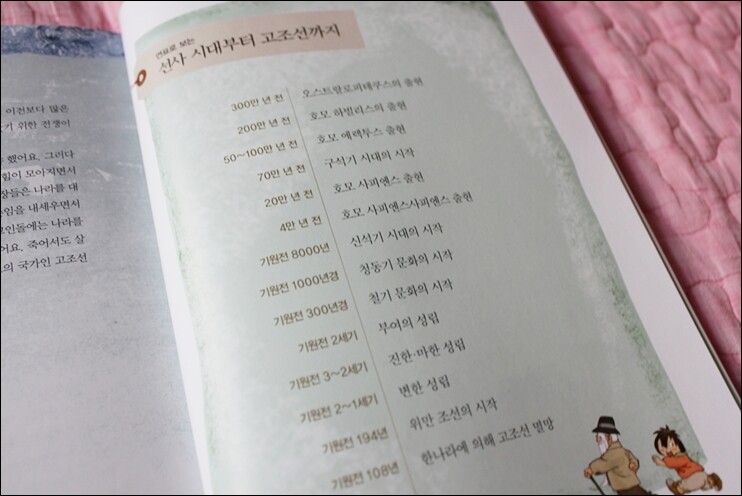 이전보다 많은
기 위한 전쟁이
했어요. 그러다
힘이 모아지면서
장들은 나라를 대
임을 내세우면서
인돌에는 나라를
어요. 죽어서도 살
의 국가인 고조선
연표로 보는
선사 시대부터 고조선까지
300만 년 전 오스트랄로피테쿠스의 출현
200만 년 전 호모 하빌리스의 출현
50~100만 년 전 호모 에렉투스 출현
70만 년 전 구석기 시대의 시작
20만 년 전 호모 사피엔스 출현
4만 년 전 호모 사피엔스사피엔스 출현
기원전 8000년 신석기 시대의 시작
기원전 1000년경 청동기 문화의 시작
기원전 300년경 철기 문화의 시작
기원전 2세기 부여의 성립
기원전 3~2세기 진한·마한 성립
기원전 2~1세기 변한 성립
기원전 194년 위만 조선의 시작
기원전 108년 한나라에 의해 고조선 멸망